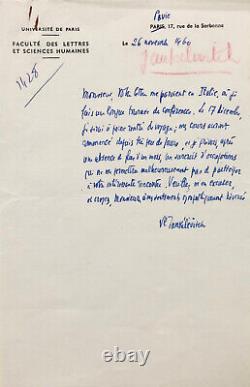 Pavie
UNIVERSITÉ DE PARIS
PARIS 5e, 17, rue de la Sorbonne
FACULTÉ DES LETTRES
ET SCIENCES HUMAINES
Le 26 novembre 1960
Jankélévitch
1428
Monsieur, Votre lettre me parvient en Italie, où je
fais une longue tournée de conférences. Le 17 décembre,
je serai à peine rentré de voyage ; mes cours auront
commencé depuis très peu de jours, et j'aurai, après
une absence de plus d'un mois, un surcroît d'occupations
qui ne me permettra malheureusement pas de participer
à votre intéressante rencontre. Veuillez m'en excuser,
et croyez, Monsieur, à mes sentiments sympathiquement dévoués
Vl Jankélévitch